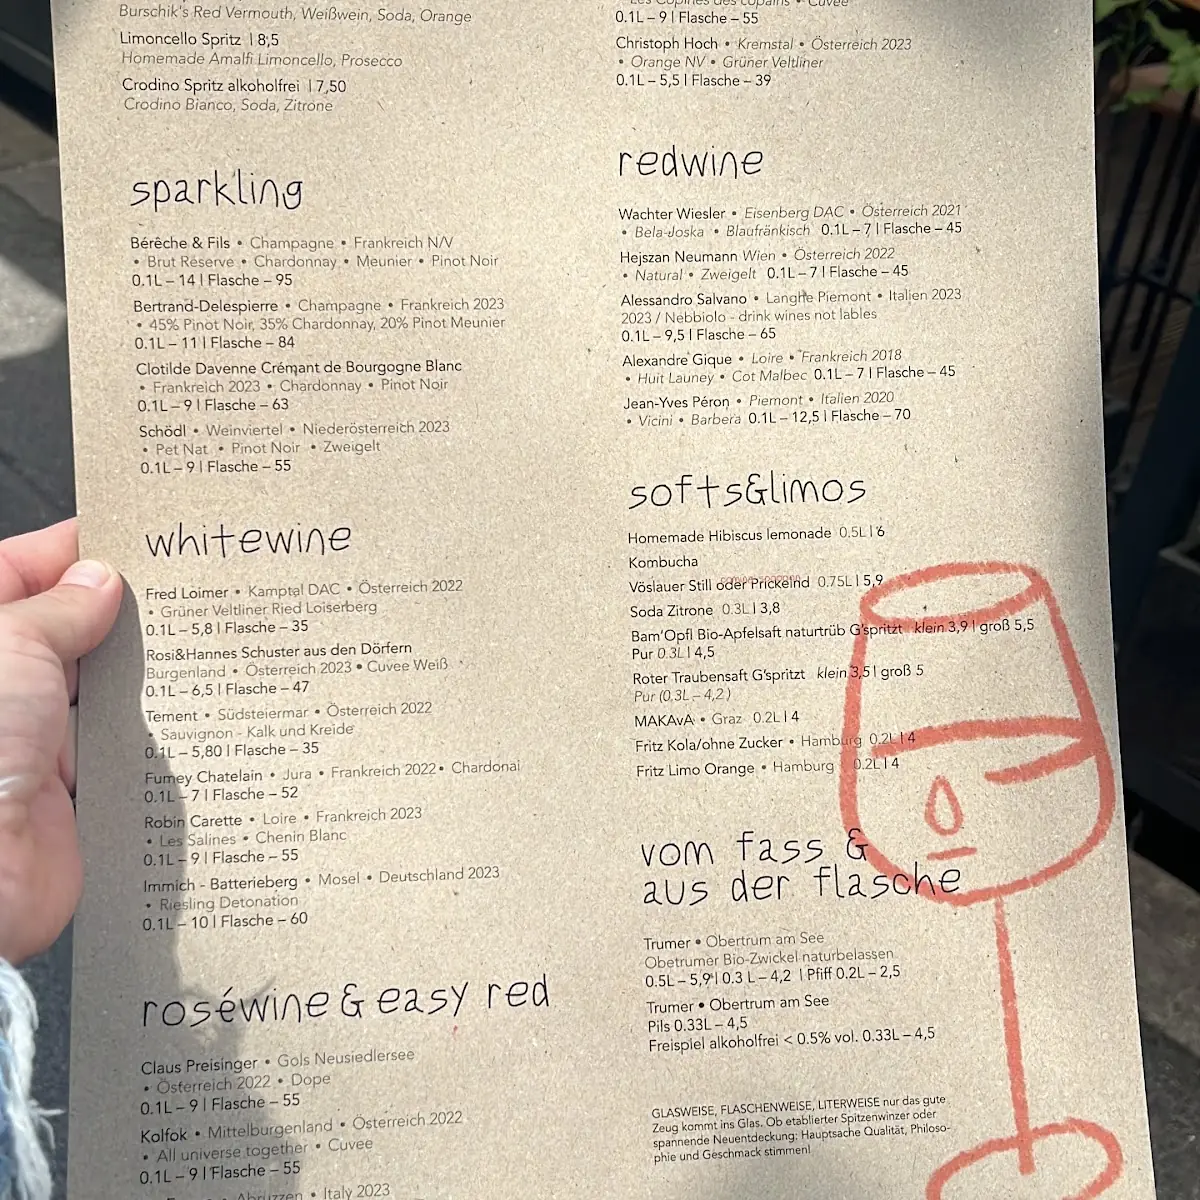 Burschik's Red Vermouth, Weißwein, Soda, Orange
Limoncello Spritz | 8,5
Homemade Amalfi Limoncello, Prosecco
Crodino Spritz alkoholfrei | 7,50
Crodino Bianco, Soda, Zitrone
sparkling
Bérêche & Fils • Champagne • Frankreich N/V
• Brut Réserve • Chardonnay • Meunier • Pinot Noir
0.1L – 14 | Flasche – 95
Bertrand-Delespierre • Champagne • Frankreich 2023
• 45% Pinot Noir, 35% Chardonnay, 20% Pinot Meunier
0.1L – 11 | Flasche – 84
Clotilde Davenne Crémant de Bourgogne Blanc
• Frankreich 2023 • Chardonnay • Pinot Noir
0.1L – 9 | Flasche – 63
Schödl • Weinviertel • Niederösterreich 2023
• Pet Nat • Pinot Noir • Zweigelt
0.1L – 9 | Flasche – 55
whitewine
Fred Loimer • Kamptal DAC • Österreich 2022
• Grüner Veltliner Ried Loiserberg
0.1L – 5,8 | Flasche – 35
Rosi&Hannes Schuster aus den Dörfern
Burgenland • Österreich 2023 • Cuvee Weiß
0.1L – 6,5 | Flasche – 47
Tement • Südsteiermar • Österreich 2022
• Sauvignon - Kalk und Kreide
0.1L – 5,80 | Flasche – 35
Fumey Chatelain • Jura • Frankreich 2022 • Chardonai
0.1L – 7 | Flasche – 52
Robin Carette • Loire • Frankreich 2023
• Les Salines • Chenin Blanc
0.1L – 9 | Flasche – 55
Immich - Batterieberg • Mosel • Deutschland 2023
• Riesling Detonation
0.1L – 10 | Flasche – 60
roséwine & easy red
Claus Preisinger • Gols Neusiedlersee
• Österreich 2022 • Dope
0.1L – 9 | Flasche – 55
Kolfok • Mittelburgenland • Österreich 2022
• All universe together • Cuvee
0.1L – 9 | Flasche – 55
Abruzzen • Italy 2023
Les Copines des copains • Cuvee
0.1L – 9 | Flasche – 55
Christoph Hoch • Kremstal • Österreich 2023
• Orange NV • Grüner Veltliner
0.1L – 5,5 | Flasche – 39
redwine
Wachter Wiesler • Eisenberg DAC • Österreich 2021
• Bela-Joska • Blaufränkisch 0.1L – 7 | Flasche – 45
Hejszan Neumann Wien • Österreich 2022
• Natural • Zweigelt 0.1L – 7 | Flasche – 45
Alessandro Salvano • Langhe Piemont • Italien 2023
2023 / Nebbiolo - drink wines not lables
0.1L – 9,5 | Flasche – 65
Alexandre Gique • Loire • Frankreich 2018
• Huit Launey • Cot Malbec 0.1L – 7 | Flasche – 45
Jean-Yves Péron • Piemont • Italien 2020
• Vicini • Barbera 0.1L – 12,5 | Flasche – 70
softs&limos
Homemade Hibiscus lemonade 0.5L | 6
Kombucha
Vöslauer Still oder Prickelnd 0.75L | 5,9
Soda Zitrone 0.3L | 3,8
Bam'Opfl Bio-Apfelsaft naturtrüb G'spritzt klein 3,9 | groß 5,5
Pur 0.3L | 4,5
Roter Traubensaft G'spritzt klein 3,5 | groß 5
Pur (0,3L – 4,2)
MAKAvA • Graz 0.2L | 4
Fritz Kola/ohne Zucker • Hamburg 0.2L | 4
Fritz Limo Orange • Hamburg 0.2L | 4
vom fass &
aus der flasche
Trumer • Obertrum am See
Obetrumer Bio-Zwickel naturbelassen
0.5L – 5,9 | 0.3 L – 4,2 | Pfiff 0.2L – 2,5
Trumer • Obertrum am See
Pils 0.33L – 4,5
Freispiel alkoholfrei < 0.5% vol. 0.33L – 4,5
GLASWEISE, FLASCHENWEISE, LITERWEISE nur das gute
Zeug kommt ins Glas. Ob etablierter Spitzenwinzer oder
spannende Neuentdeckung: Hauptsache Qualität, Philoso-
phie und Geschmack stimmen!